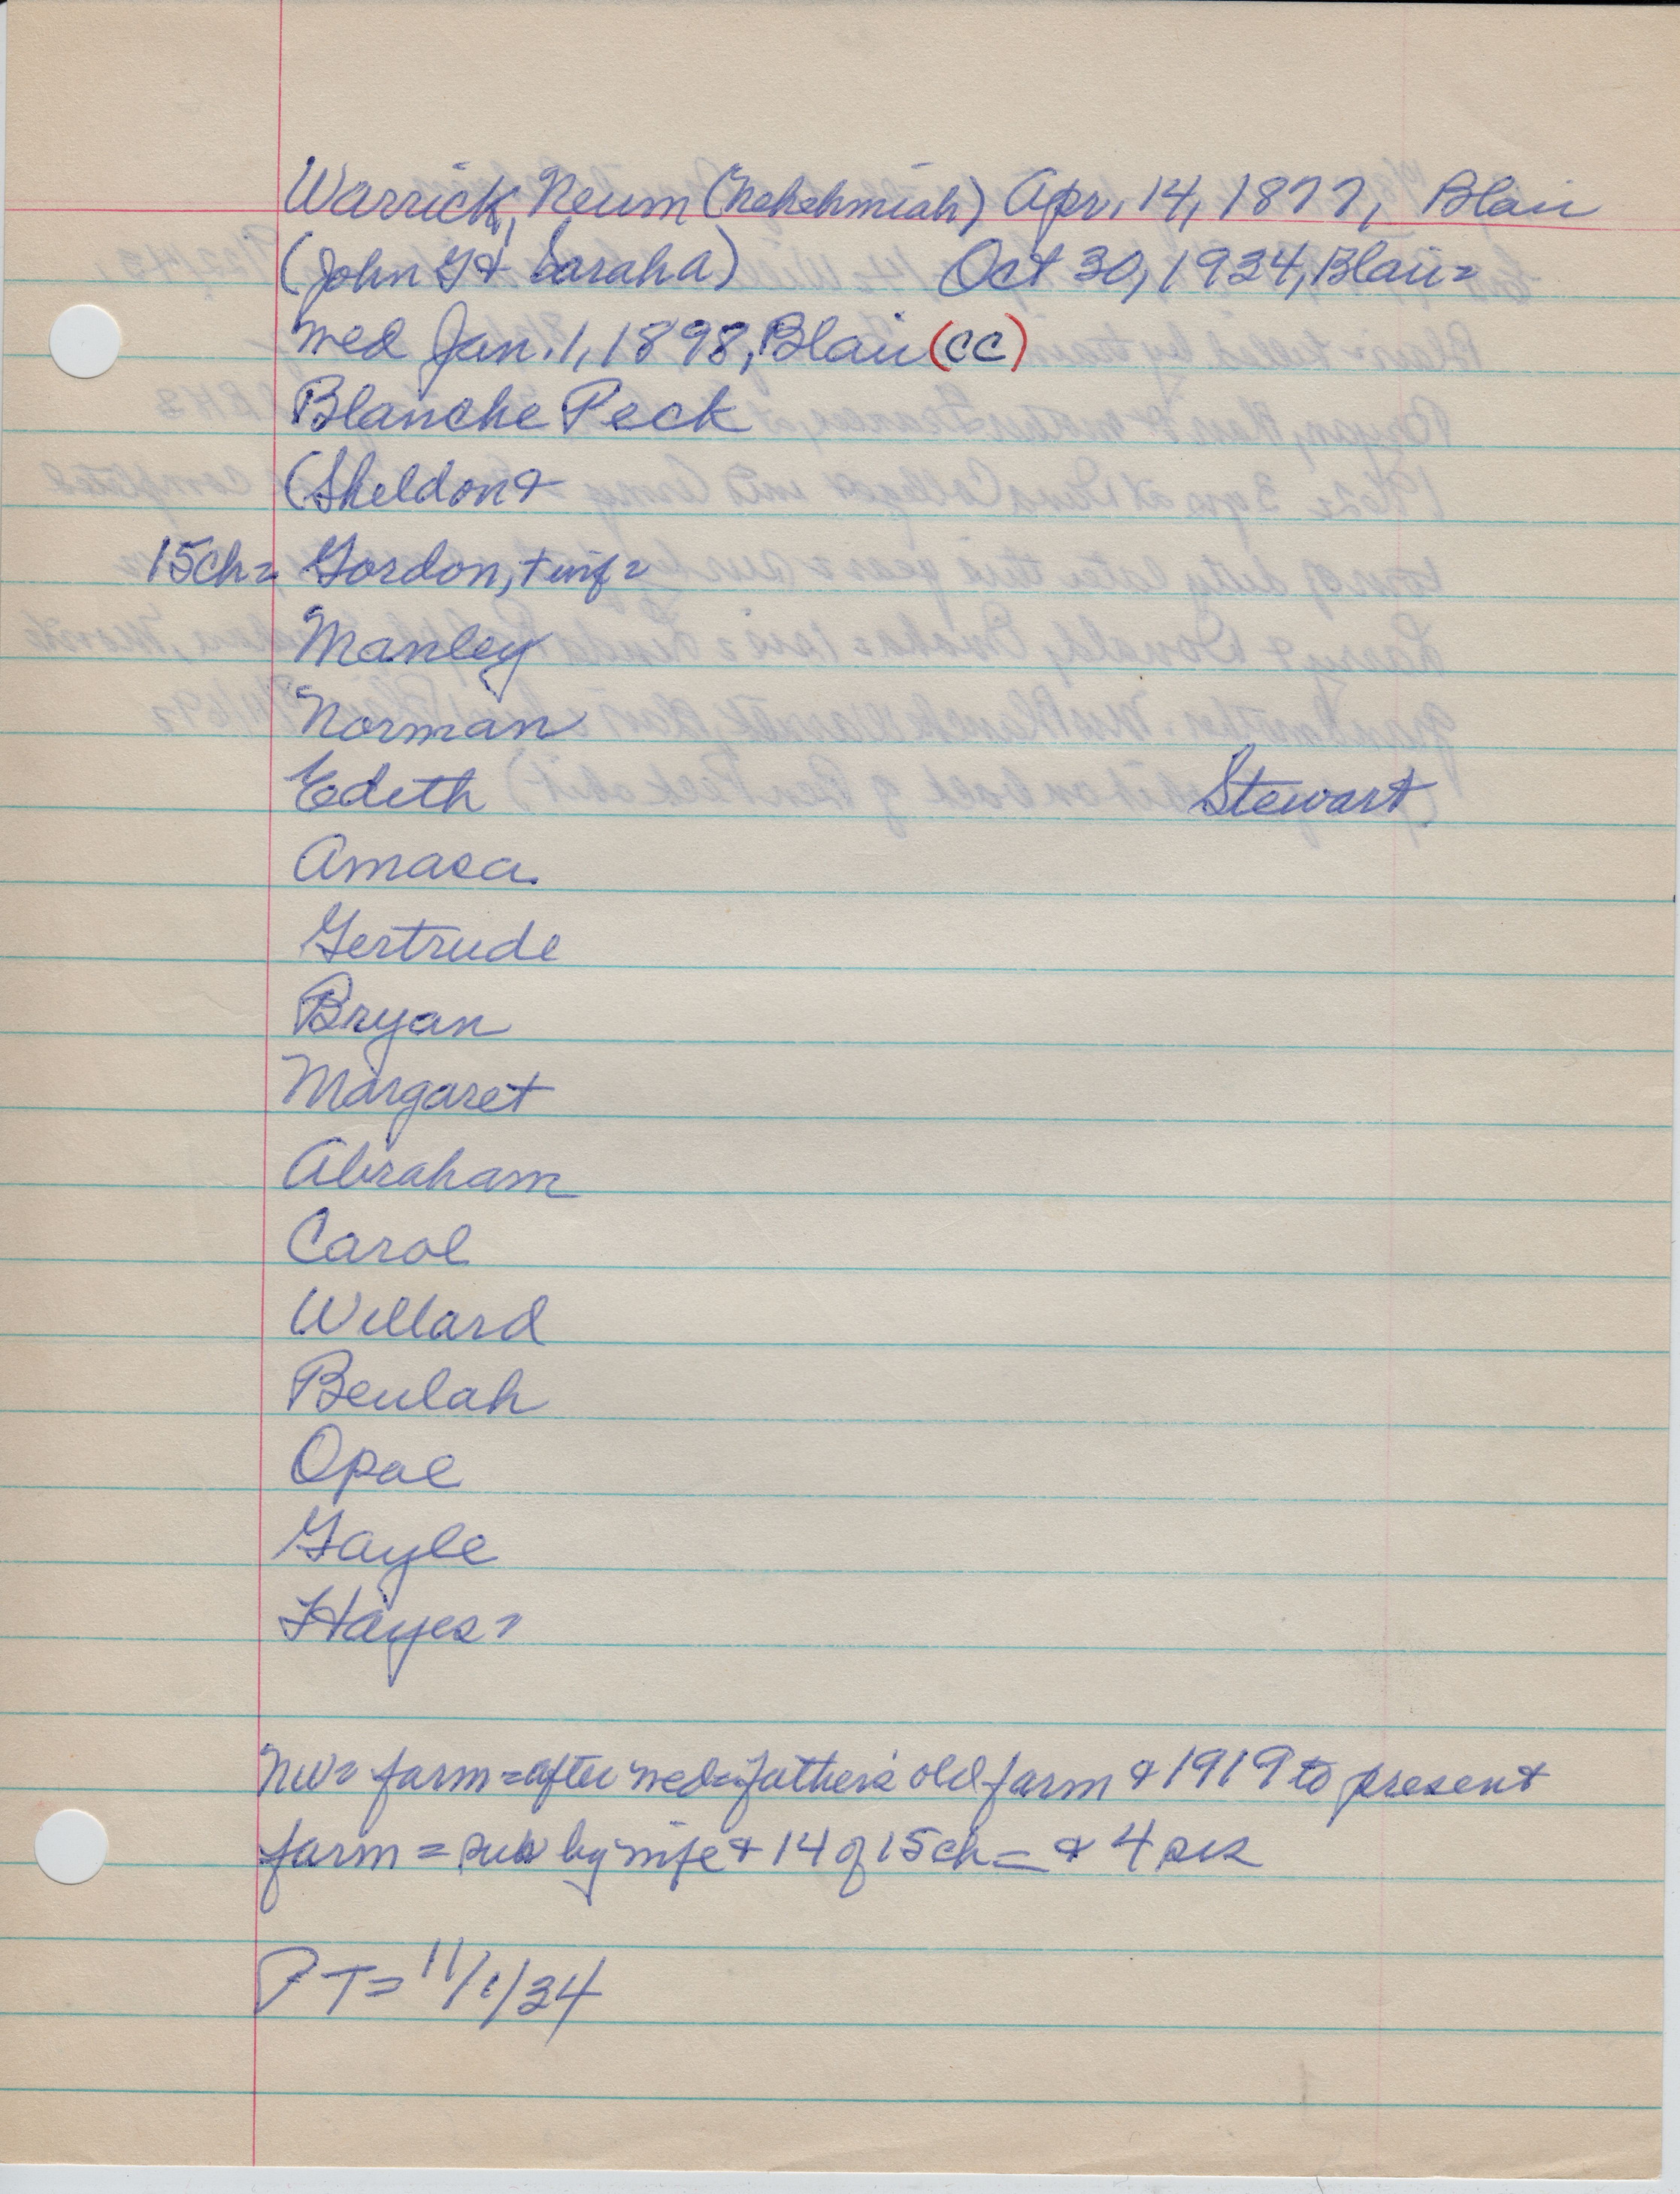 Warrick, Neum (Nehehmiah) Apr. 14, 1877, Blair
(John G & Sarah A) Oct 30, 1934, Blair=
med Jan. 1, 1898, Blair (CC)
Blanche Peck
(Sheldon &
15ch= Gordon, + inf=
Manley
Norman
Edith Stewart
Amasa
Gertrude
Bryan
Margaret
Abraham
Carol
Willard
Beulah
Opal
Gayle
Hayes=
NW= farm=after med=father's old farm & 1919 to present
farm = sub by wife & 14 of 15 ch= & 4 sis
PT= 11/1/34